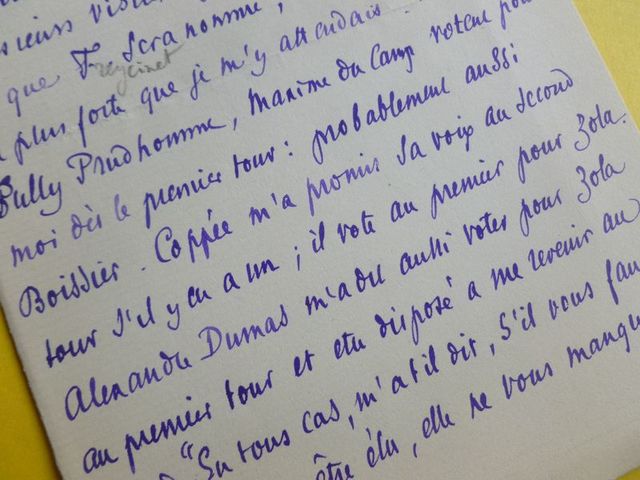 que F. scra nomme,
Freycinet
plus forte que je m'y attendais.
Sully Prudhomme, Maxime du Camp votent pour
moi dès le premier tour : probablement aussi
Boissier. Coppée m'a promis sa voix au second
tour s'il y en a un ; il vote au premier pour Zola.
Alexandre Dumas m'a dit aussi voter pour Zola
au premier tour et etre disposé a me revenir au
"En tous cas, m'a t'il dit, s'il vous fau
être élu, elle ne vous manqu